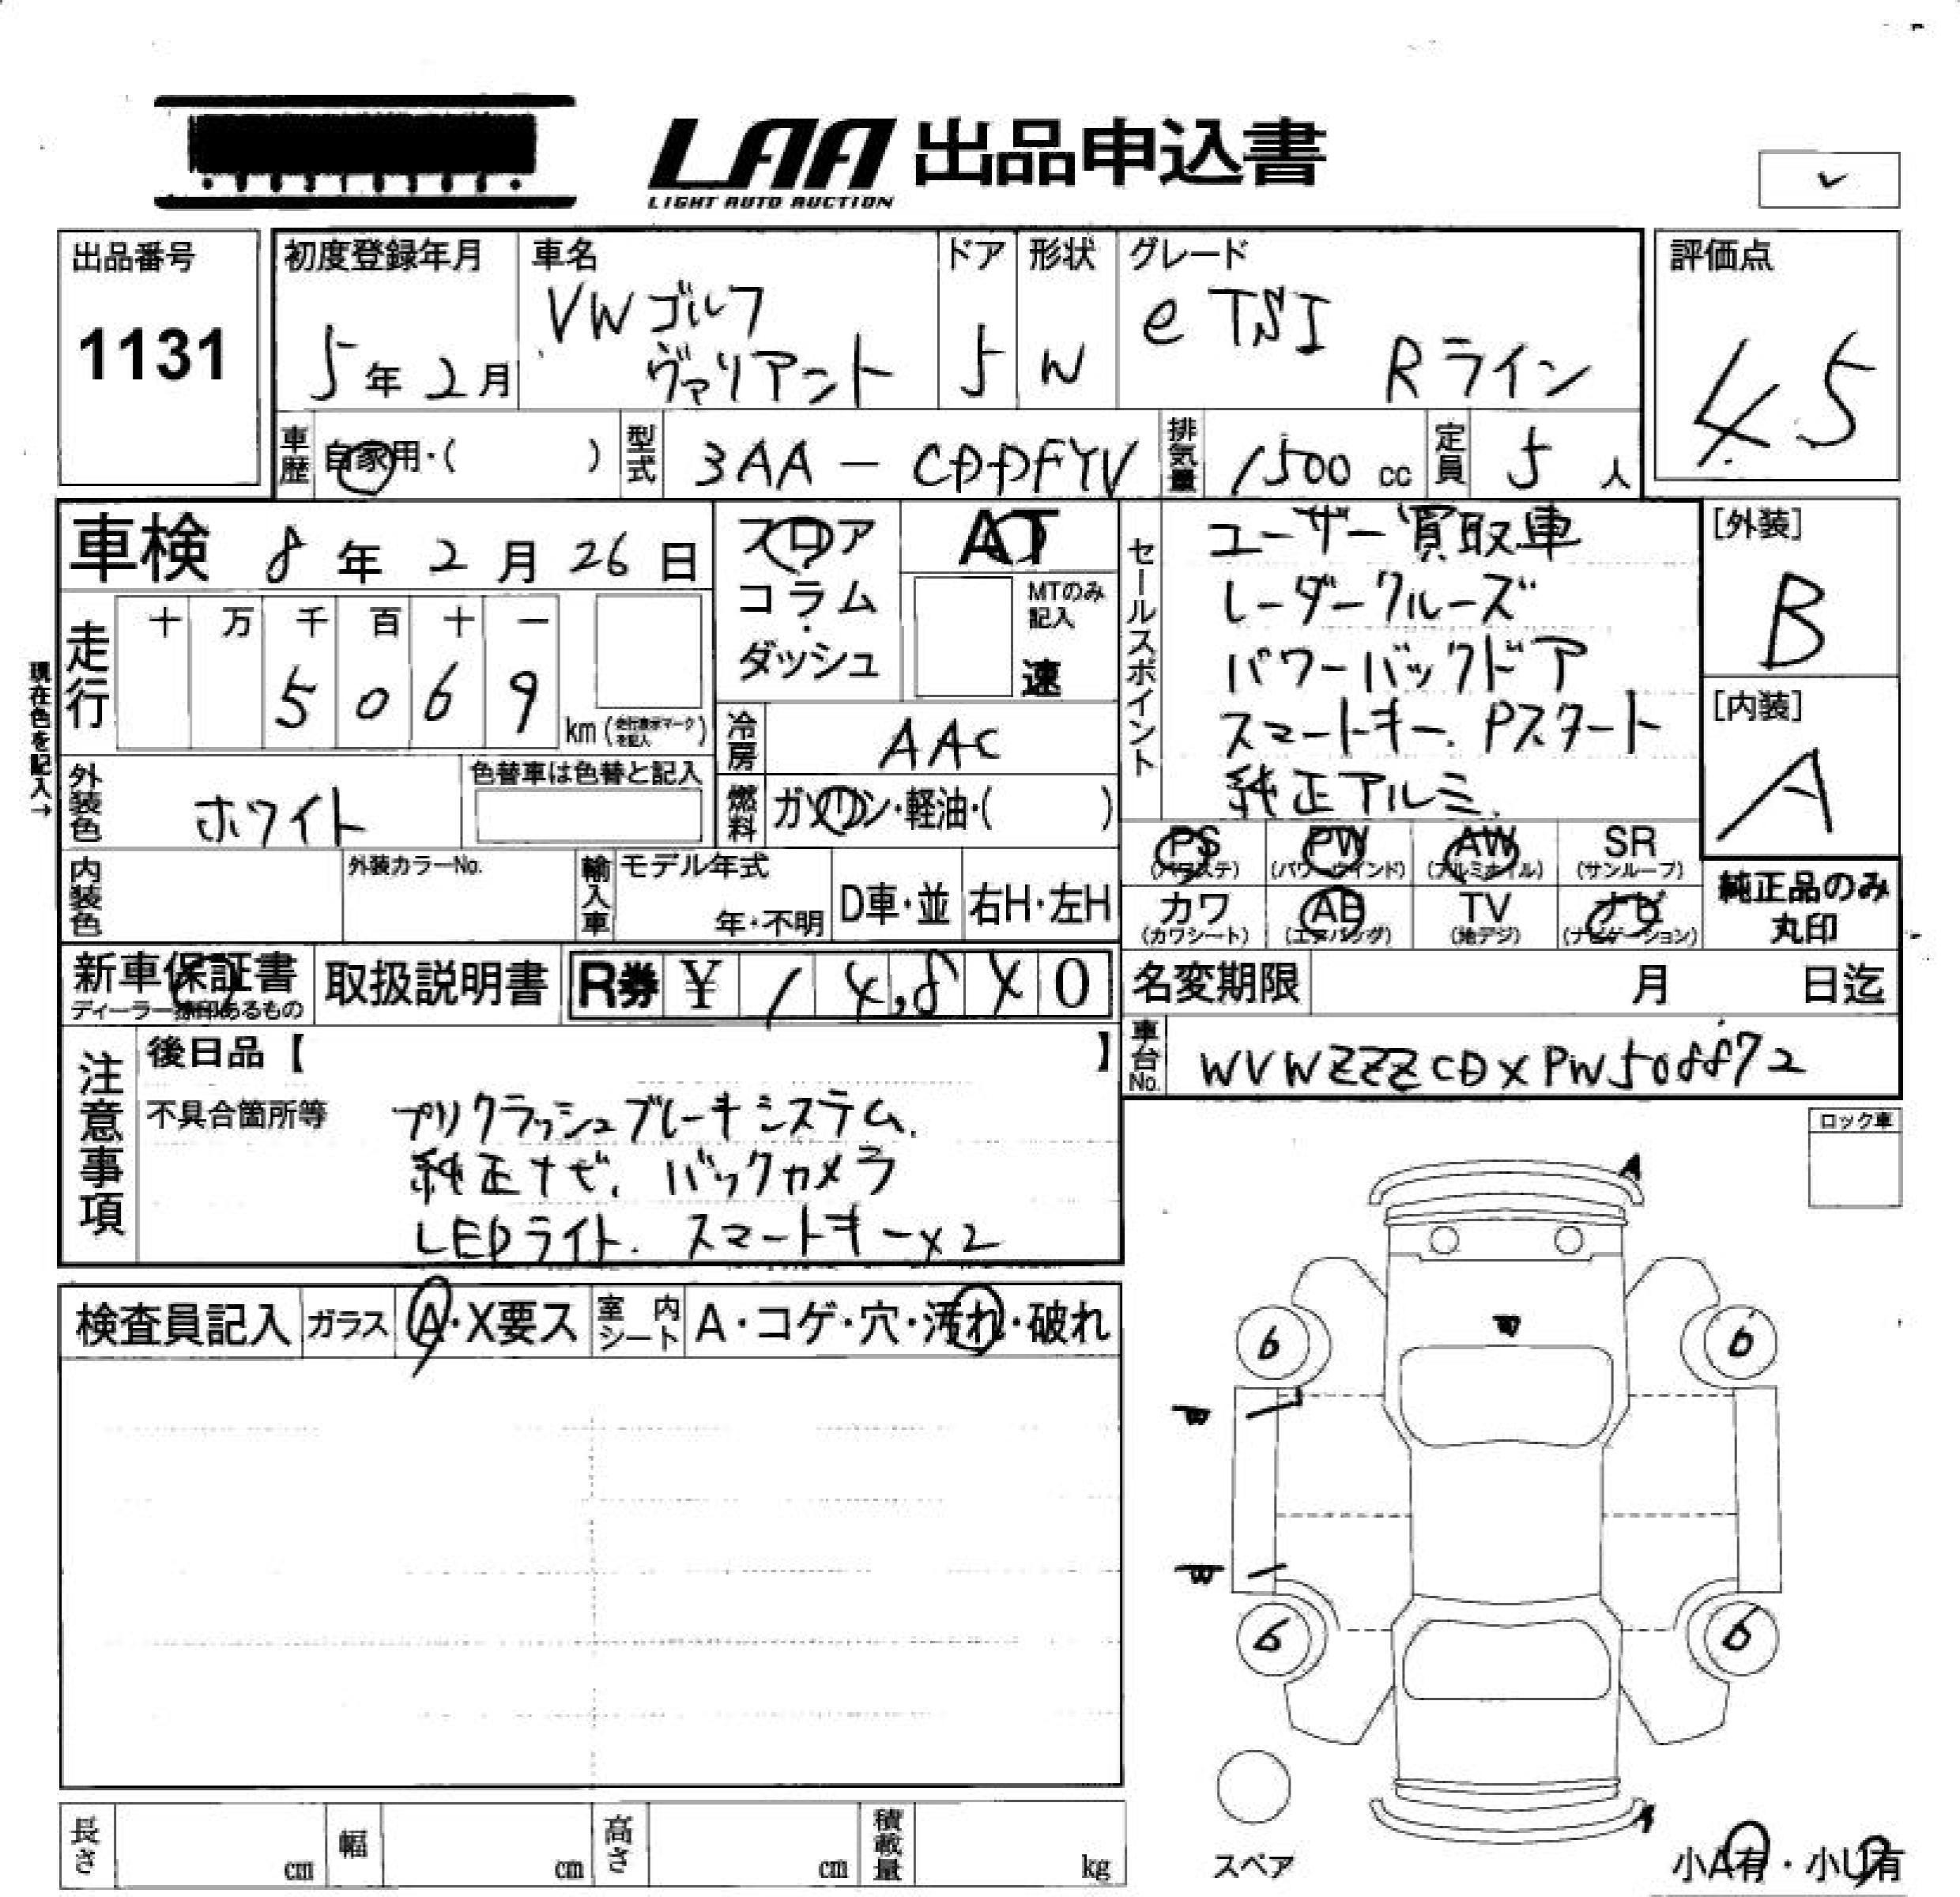 LAA 出品申込書
LIGHT AUTO AUCTION
✓
出品番号
1131
初度登録年月
5年2月
車名
VWゴルフ
ヴァリアント
ドア
5
形状
W
グレード
e TSI
Rライン
評価点
4.5
車歴
自家用・( )
型式
3AA－CDDFYV
排気量
1500 cc
定員
5人
車検 8年2月26日
走行
十 万 千 百 十 一
5 0 6 9
km (走行表示マークを記入)
現在色を記入→
外装色
ホワイト
色替車は色替と記入
内装色
外装カラーNo.
輸入車
モデル年式
年・不明
D車・並
右H・左H
フロア
コラム
ダッシュ
AT
MTのみ
記入
速
冷房
AAC
燃料
ガソリン・軽油・( )
セールスポイント
ユーザー買取車
レーダークルーズ
パワーバックドア
スマートキー. Pスタート
純正アルミ.
[外装]
B
[内装]
A
PS
(パワステ)
PW
(パワーウインド)
AW
(アルミホイル)
SR
(サンルーフ)
カワ
(カワシート)
AB
(エアバッグ)
TV
(地デジ)
ナビ
(ナビゲーション)
純正品のみ
丸印
新車保証書
ディーラー捺印あるもの
取扱説明書
R券 ¥ 1 4,8 X 0
名変期限 月 日迄
車台No.
WVWZZZCDXPW508872
注意事項
後日品【 】
不具合箇所等
プリクラッシュブレーキシステム.
純正ナビ. バックカメラ
LEDライト. スマートキー×2
ロック車
検査員記入
ガラス
A・X要ス
室内
シート
A・コゲ・穴・汚れ・破れ
A
6
6
6
6
A
スペア
小A有・小U有
長さ cm
幅 cm
高さ cm
積載量 kg